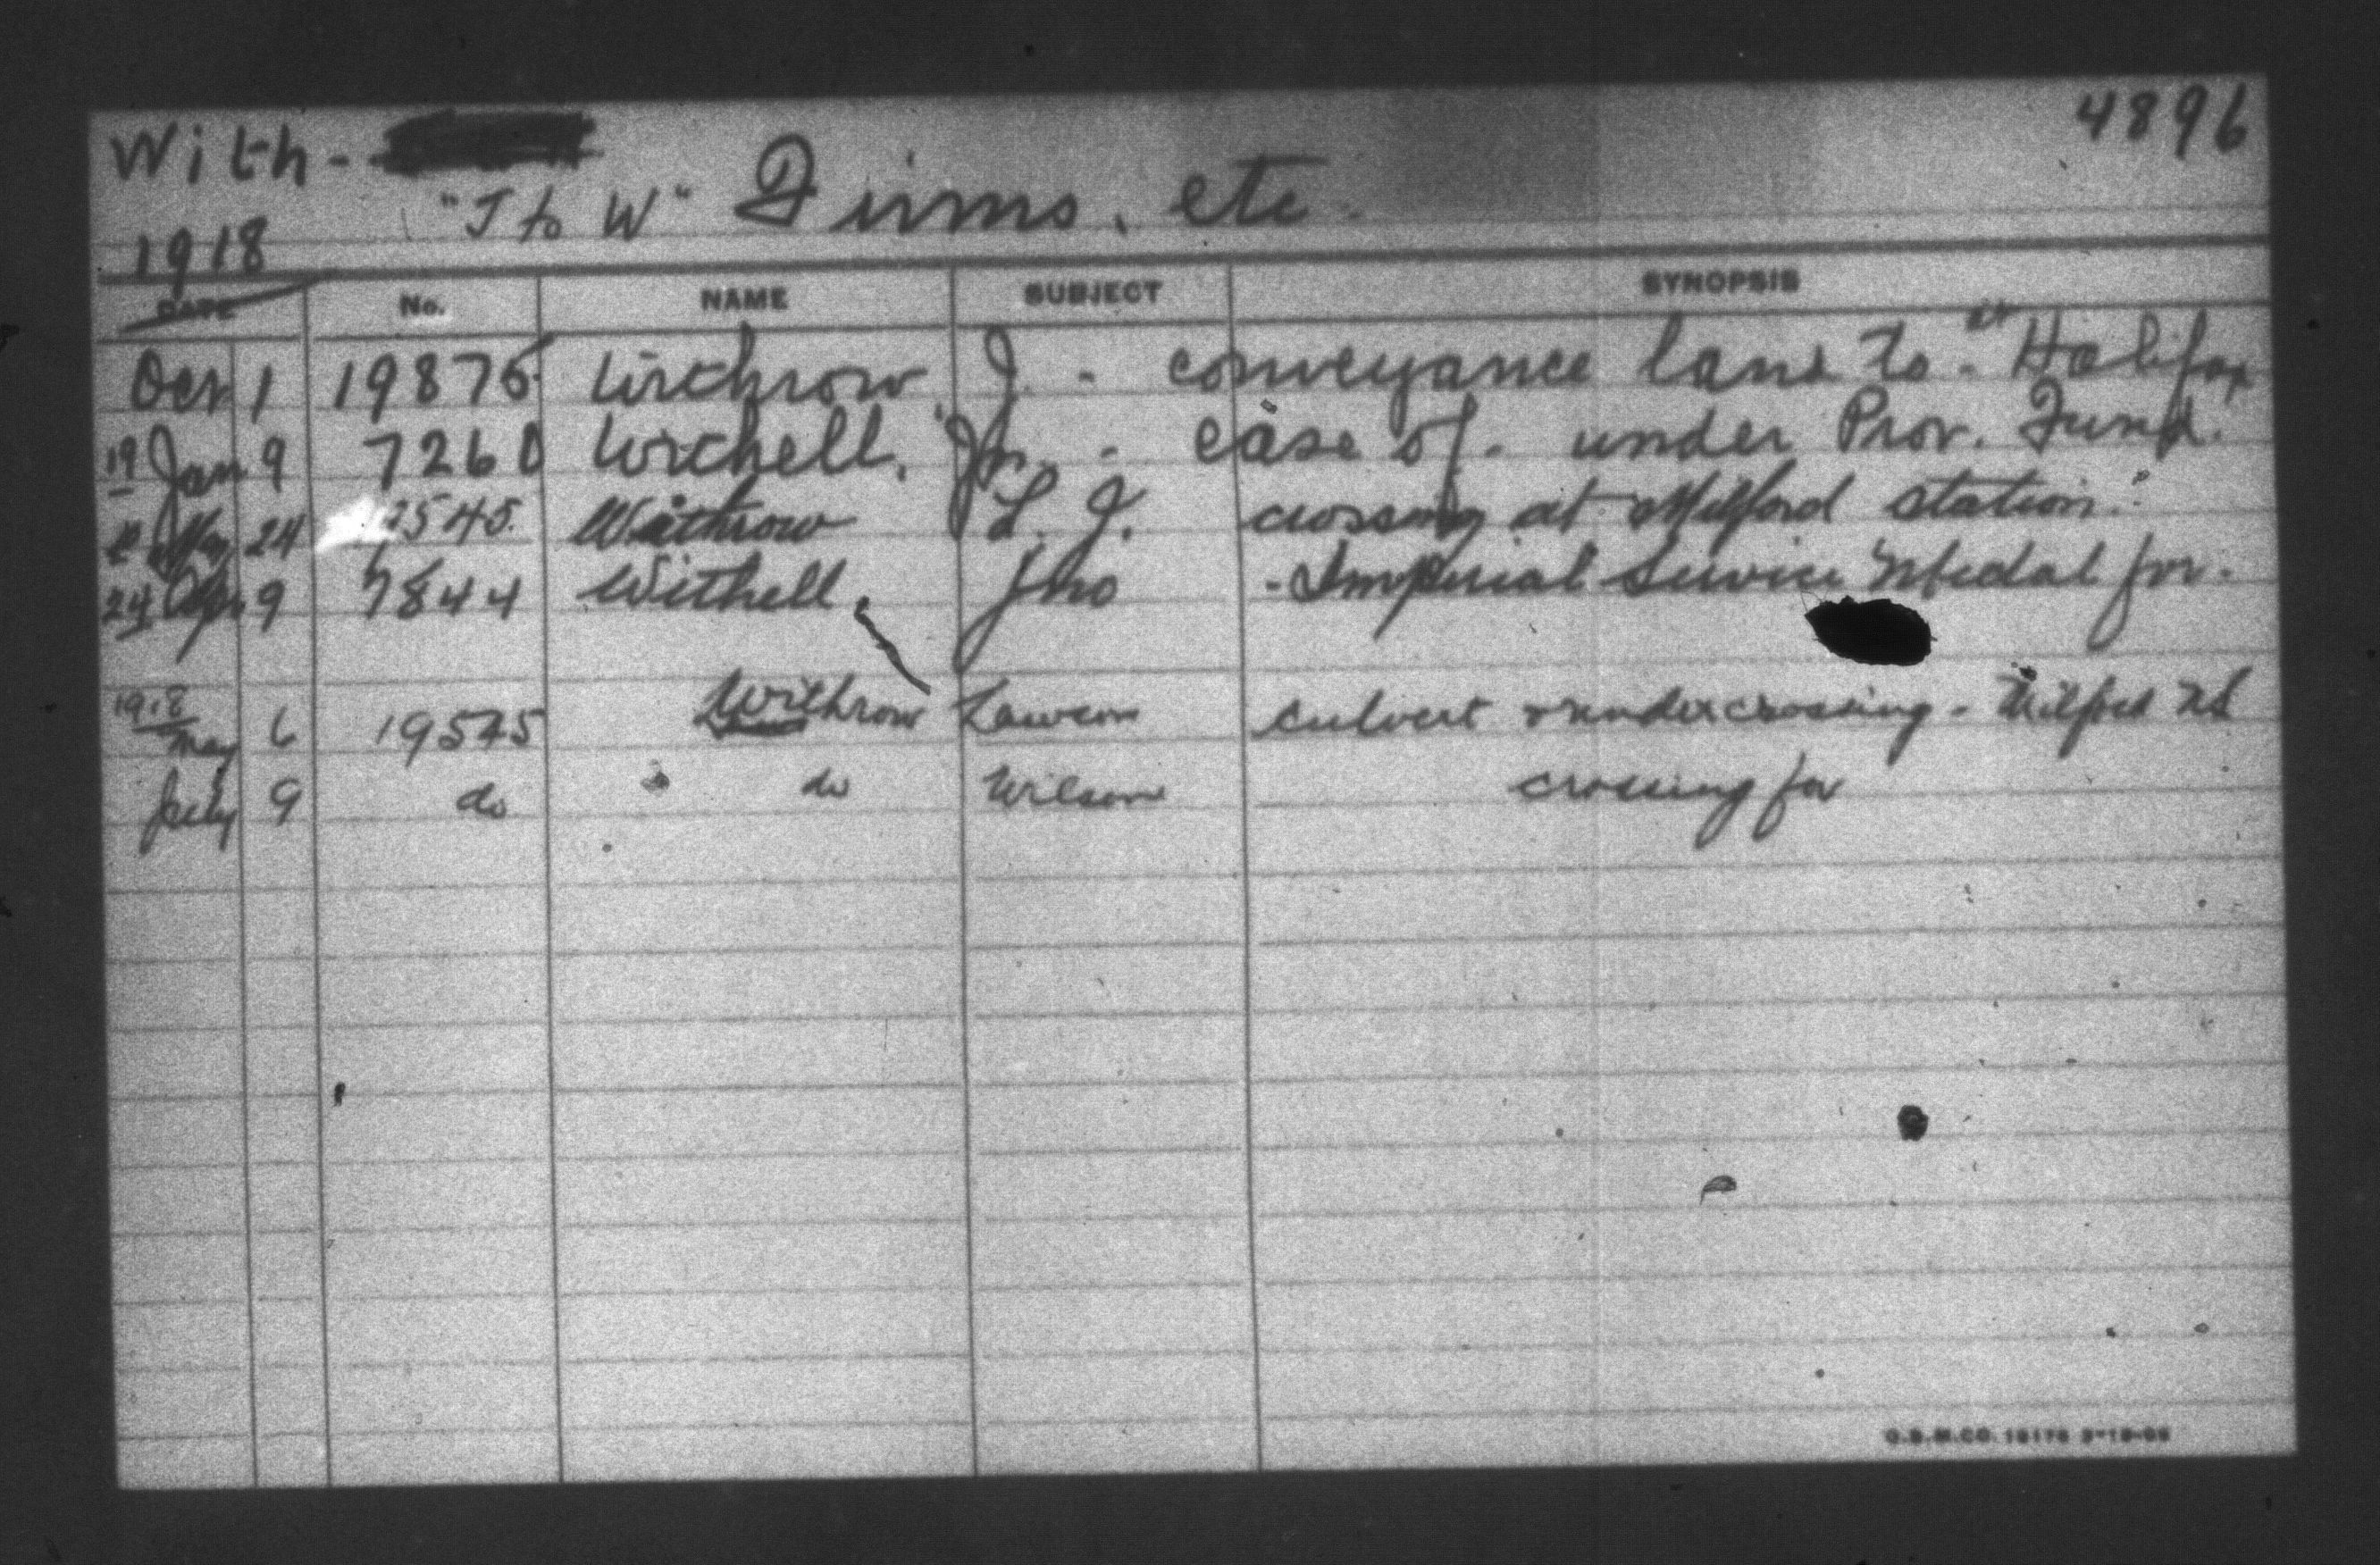 With- 4896
"J to W" Firms, etc.
1918
DATE No. NAME SUBJECT SYNOPSIS
Oct 1 19875 Withrow J. - conveyance land to - at Halifax
19 Jan 9 7260 Withell, Jn. - case of - under Prov. Fund.
24 2545. Withrow L. J. crossing at Milford station.
24 Apr. 9 7844 Withell, Jno - Imperial Service Medal for.
1918 May 6 19545 Withrow Lawson culvert & undercrossing - Milford NS
July 9 do do Wilson crossing for